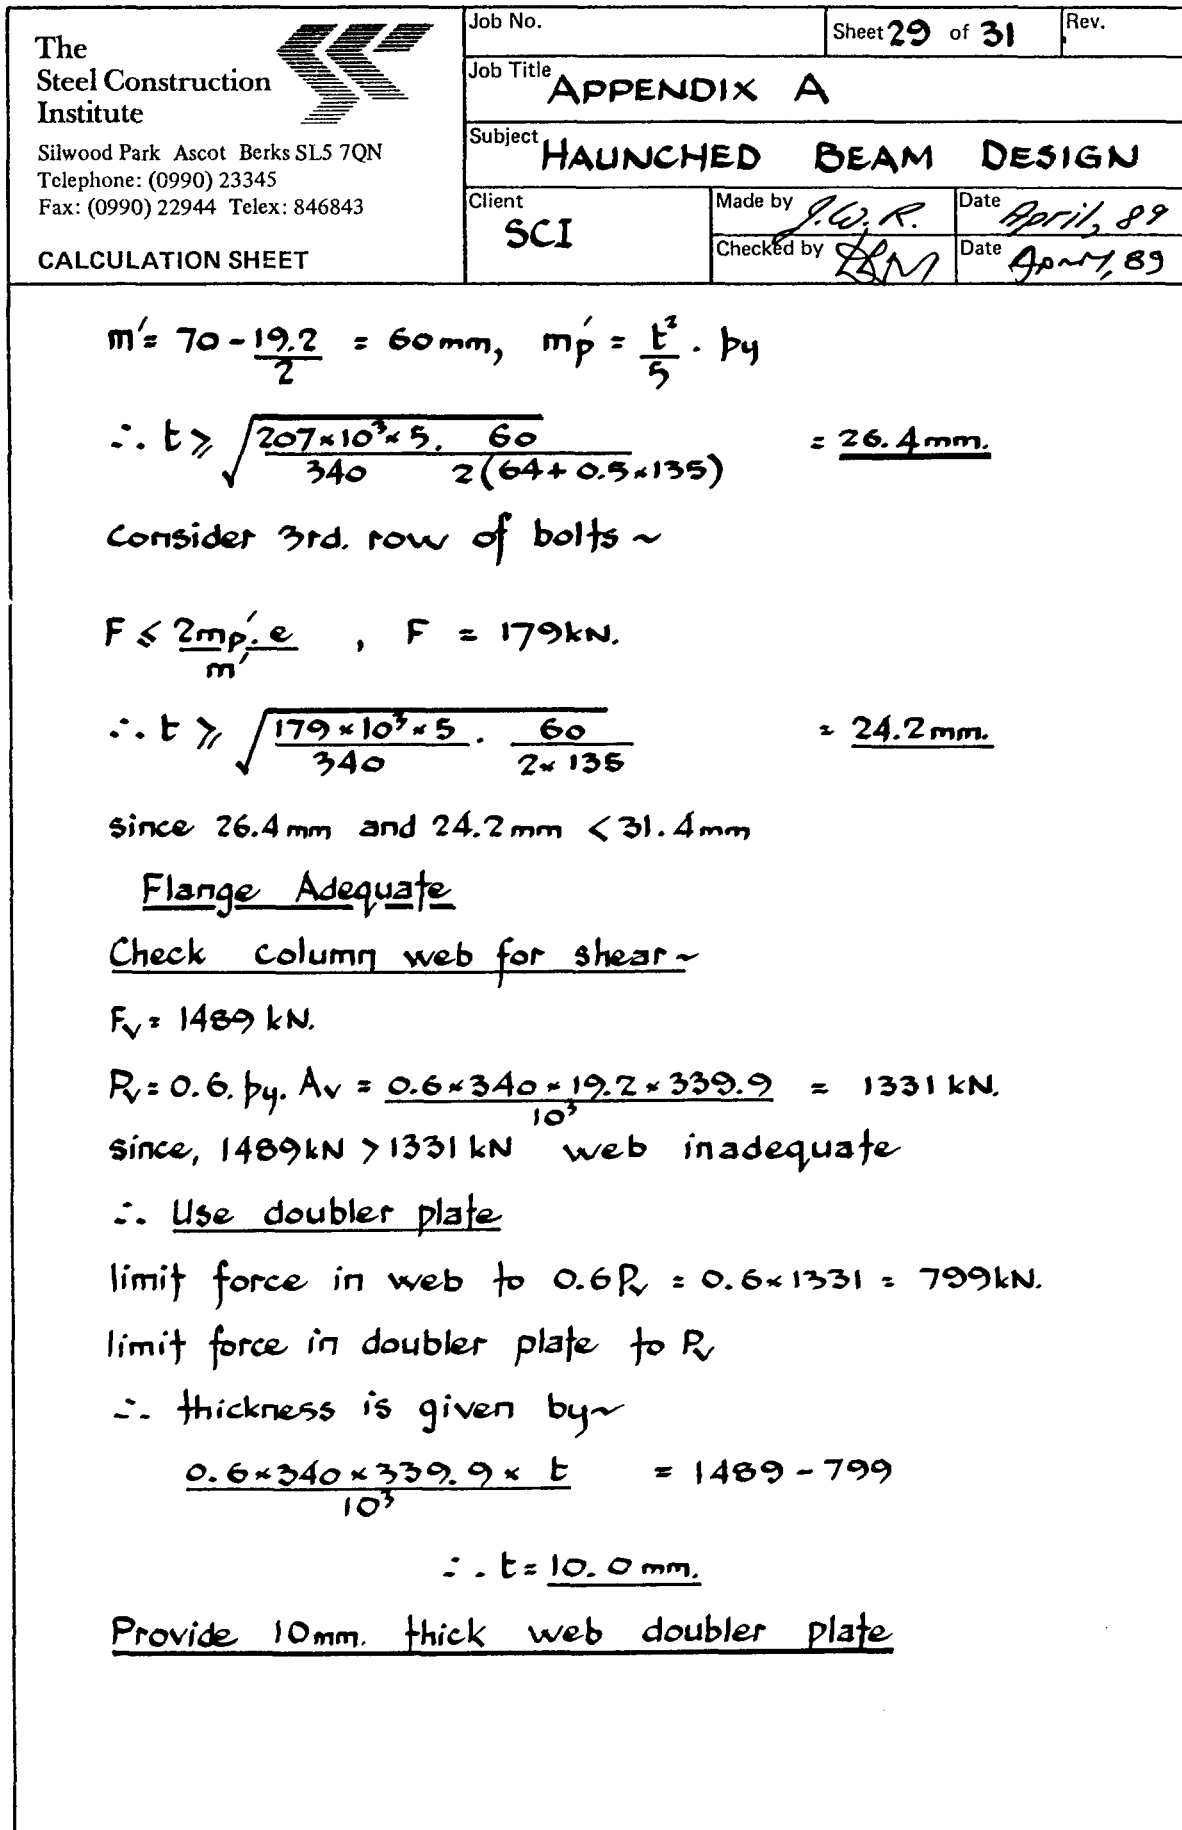 The
Steel Construction
Institute
Silwood Park Ascot Berks SL5 7QN
Telephone: (0990) 23345
Fax: (0990) 22944 Telex: 846843
CALCULATION SHEET
Job No.
Sheet 29 of 31
Rev.
Job Title APPENDIX A
Subject HAUNCHED BEAM DESIGN
Client SCI
Made by J.W.R.
Date April, 89
Checked by
Date April, 89
m' = 70 - 19.2/2 = 60mm, mp' = t²/5 . py
∴ t ≥ √(207×10³×5/340 . 60/2(64+0.5×135)) = 26.4mm.
Consider 3rd. row of bolts ~
F ≤ 2mp'.e/m' , F = 179kN.
∴ t ≥ √(179×10³×5/340 . 60/2×135) = 24.2mm.
since 26.4mm and 24.2mm < 31.4mm
Flange Adequate
Check column web for shear ~
Fv = 1489 kN.
Pv = 0.6. py. Av = 0.6×340×19.2×339.9/10³ = 1331 kN.
since, 1489kN > 1331 kN web inadequate
∴ Use doubler plate
limit force in web to 0.6Pv = 0.6×1331 = 799kN.
limit force in doubler plate to Pv
∴ thickness is given by ~
0.6×340×339.9×t/10³ = 1489 - 799
∴ t = 10.0mm.
Provide 10mm. thick web doubler plate